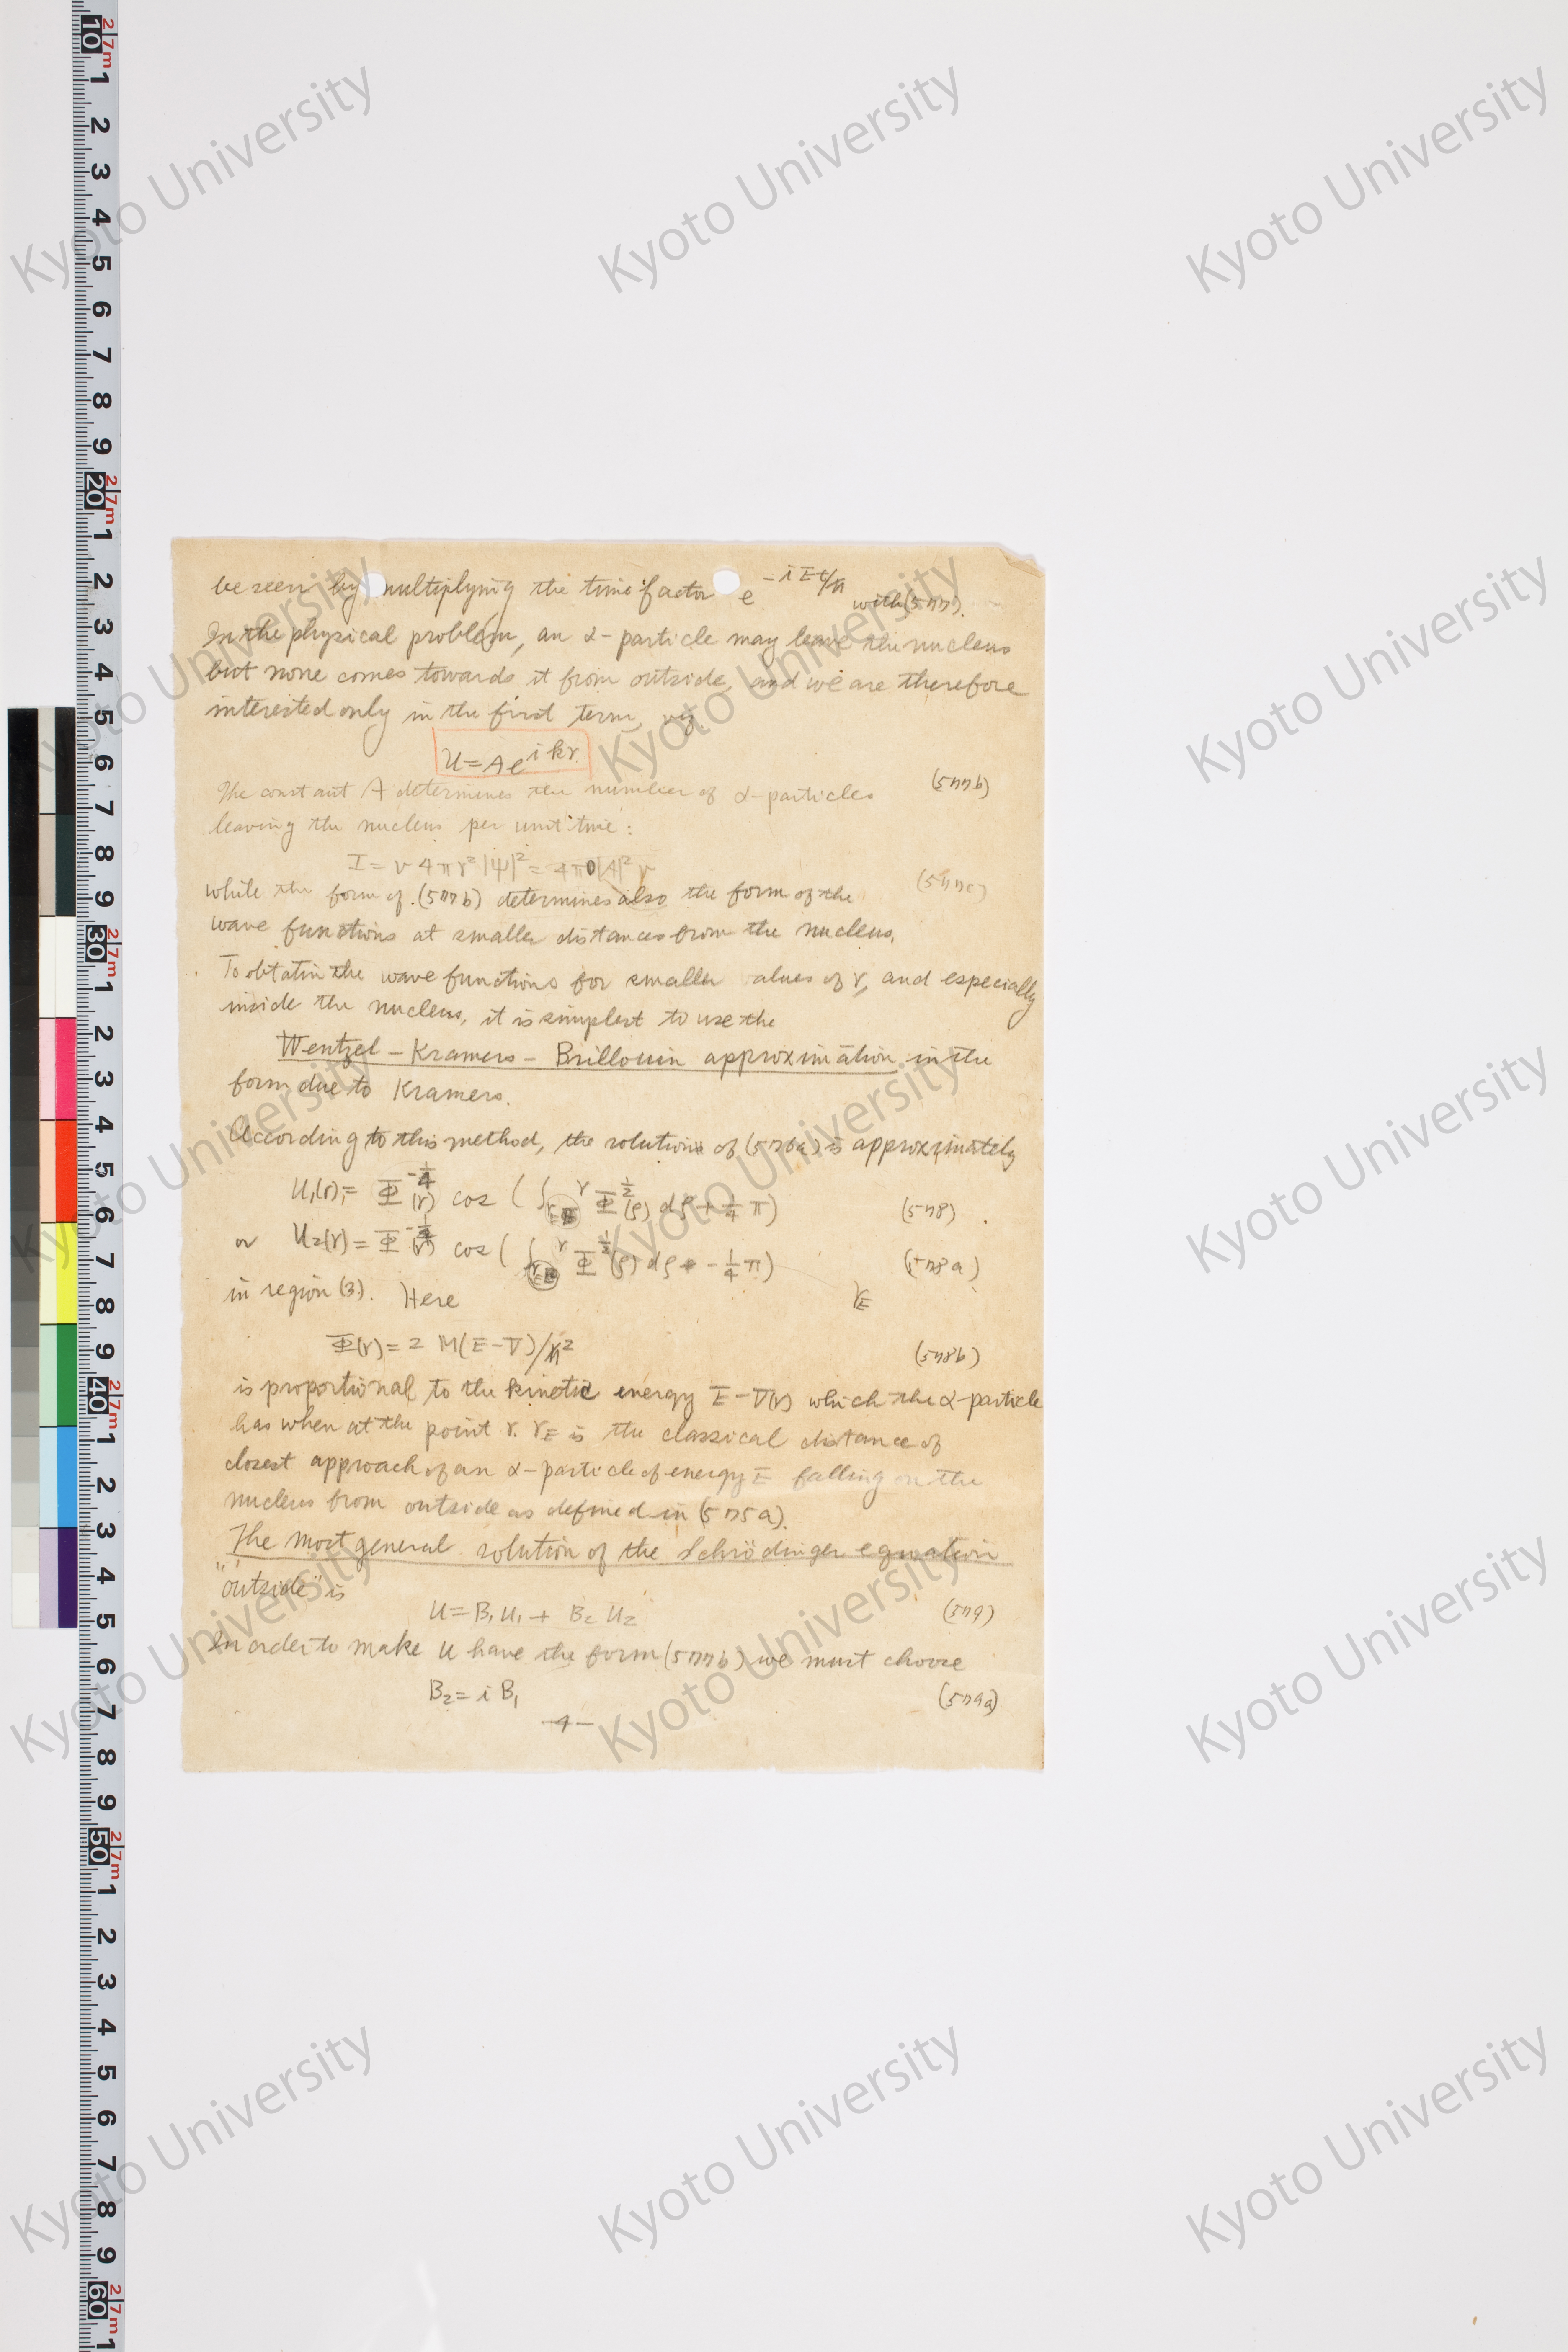 be seen by multiplying the time factor e^{-iEt/ħ} with (577).
In the physical problem, an α-particle may leave the nucleus
but none comes towards it from outside, and we are therefore
interested only in the first term, viz.
U = A e^{ikr} (577b)
The constant A determines the number of α-particles
leaving the nucleus per unit time:
I = v 4πr² |ψ|² = 4π|A|² v (577c)
while the form of (577b) determines also the form of the
wave functions at smaller distances from the nucleus.
To obtatin the wave functions for smaller alues of r, and especially
inside the nucleus, it is simplest to use the
Wentzel – Kramers – Brillouin approximation in the
form due to Kramers.
According to this method, the solutions of (576a) is approximately
U₁(r) = Φ^{-1/4}(r) cos (∫_{r_E}^{r} Φ^{1/2}(ρ) dρ + 1/4 π) (578)
or U₂(r) = Φ^{-1/4}(r) cos (∫_{r_E}^{r} Φ^{1/2}(ρ) dρ - 1/4 π) (578a)
in region (3). Here r_E
Φ(r) = 2 M(E-V)/ħ² (578b)
is proportional to the kinetic energy E-V(r) which the α-particle
has when at the point r. r_E is the classical distance of
closest approach of an α-particle of energy E falling on the
nucleus from outside as defined in (575a).
The most general solution of the Schrödinger equation
"outside" is
U = B₁U₁ + B₂U₂ (579)
In order to make U have the form (577b) we must choose
B₂ = i B₁ (579a)
-4-